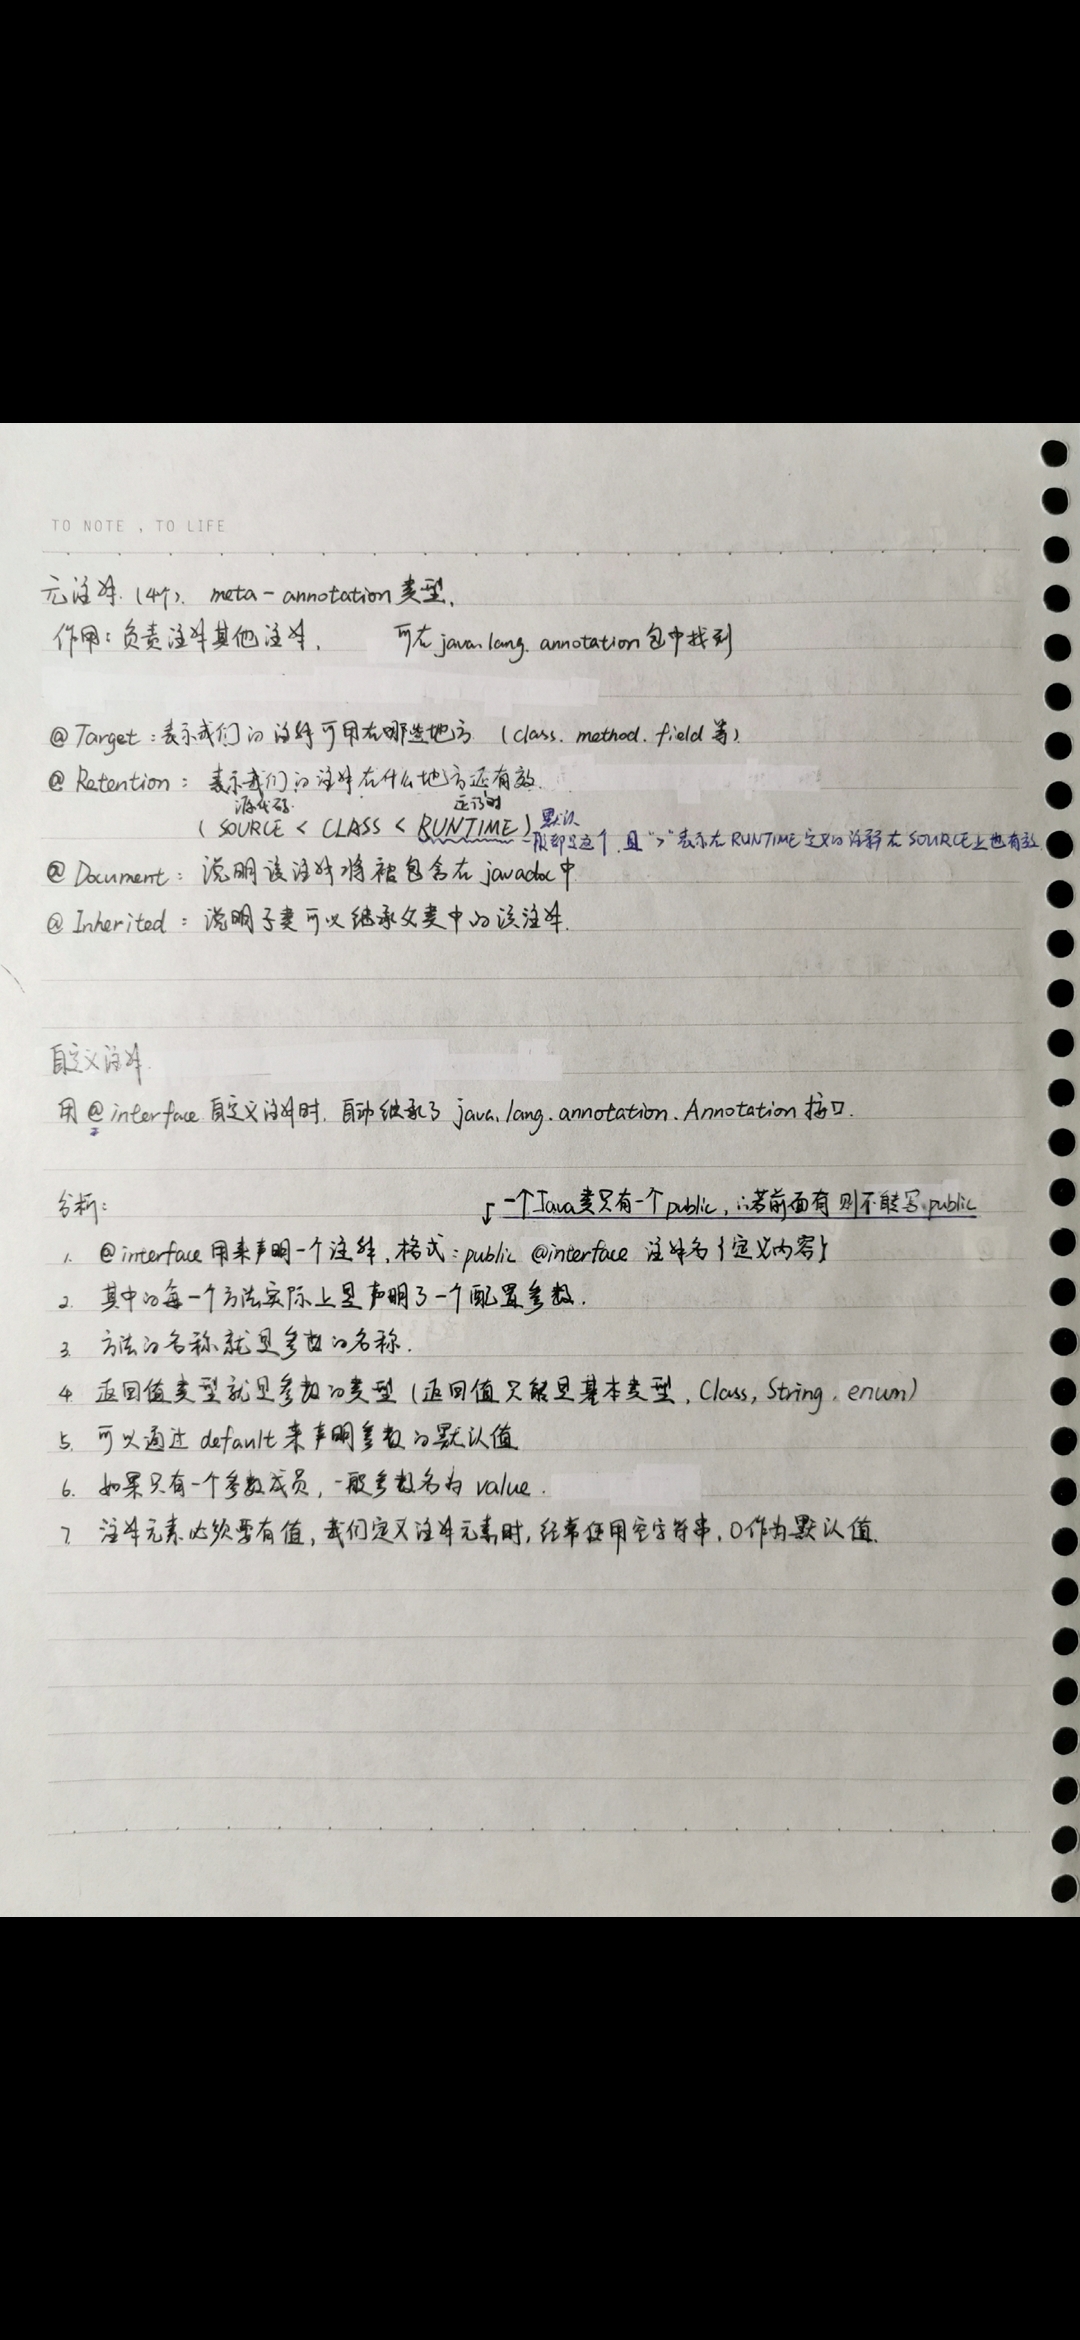 TO NOTE , TO LIFE
元注释. (4个). meta-annotation 类型.
作用: 负责注释其他注释. 可在 java.lang.annotation 包中找到
@Target : 表示我们的注释可用在哪些地方 (class. method. field 等)
@Retention : 表示我们的注释在什么地方还有效.
源代码 运行时
(SOURCE < CLASS < RUNTIME) 默认
一般都是这个. 且 ">" 表示在 RUNTIME 定义的注释在 SOURCE 上也有效
@Document : 说明该注释将被包含在 javadoc 中
@Inherited : 说明子类可以继承父类中的该注释.
自定义注释.
用 @interface 自定义注释时. 自动继承了 java.lang.annotation.Annotation 接口.
分析:
一个Java类只有一个 public, ∴若前面有则不能写 public
1. @interface 用来声明一个注释, 格式: public @interface 注释名 {定义内容}
2. 其中的每一个方法实际上是声明了一个配置参数.
3. 方法的名称就是参数的名称.
4. 返回值类型就是参数的类型 (返回值只能是基本类型, Class, String, enum)
5. 可以通过 default 来声明参数的默认值
6. 如果只有一个参数成员, 一般参数名为 value.
7. 注释元素必须要有值, 我们定义注释元素时, 经常使用空字符串, 0作为默认值.